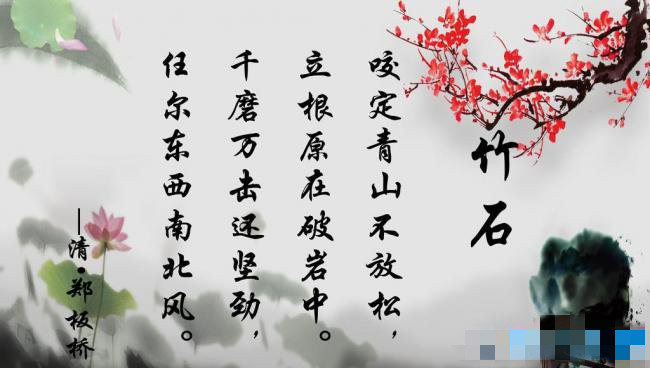 竹石
咬定青山不放松，
立根原在破岩中。
千磨万击还坚劲，
任尔东西南北风。
—清•郑板桥